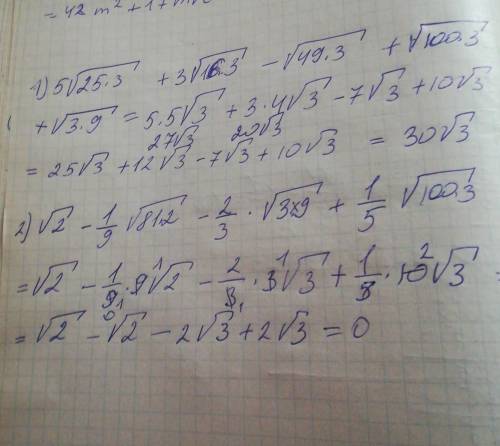 = 42 m² + 17m
1) 5√25.3 + 3√16.3 − √49.3 + √100.3
+ √3.9 = 5.5√3 + 3.4√3 − 7√3 + 10√3
27√3 20√3
= 25√3 + 12√3 − 7√3 + 10√3 = 30√3
2) √2 − 1/9 √81.2 − 2/3 · √3×9 + 1/5 √100.3
= √2 − 1/9 · 9√2 − 2/3 · 3√3 + 1/5 · 10√3 =
= √2 − √2 − 2√3 + 2√3 = 0